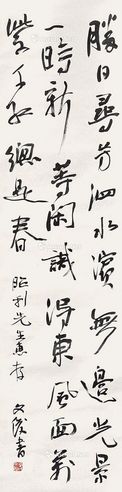 勝日尋芳泗水濱無邊光景
一時新等閒識得東風面萬
紫千紅總是春
昭利先生惠存
文俊書